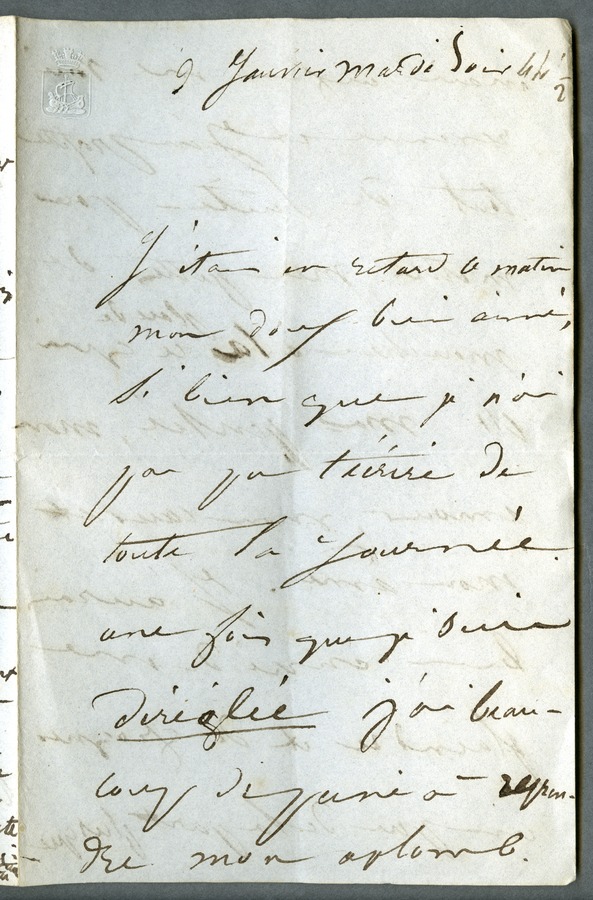 9 Janvier mardi Soir 4h ½
J'étais en retard ce matin
mon doux bien aimé,
si bien que je n'ai
pas pu t'écrire de
toute la journée.
une fois que je suis
déréglée j'ai beau-
coup de peine à repren-
dre mon aplomb.